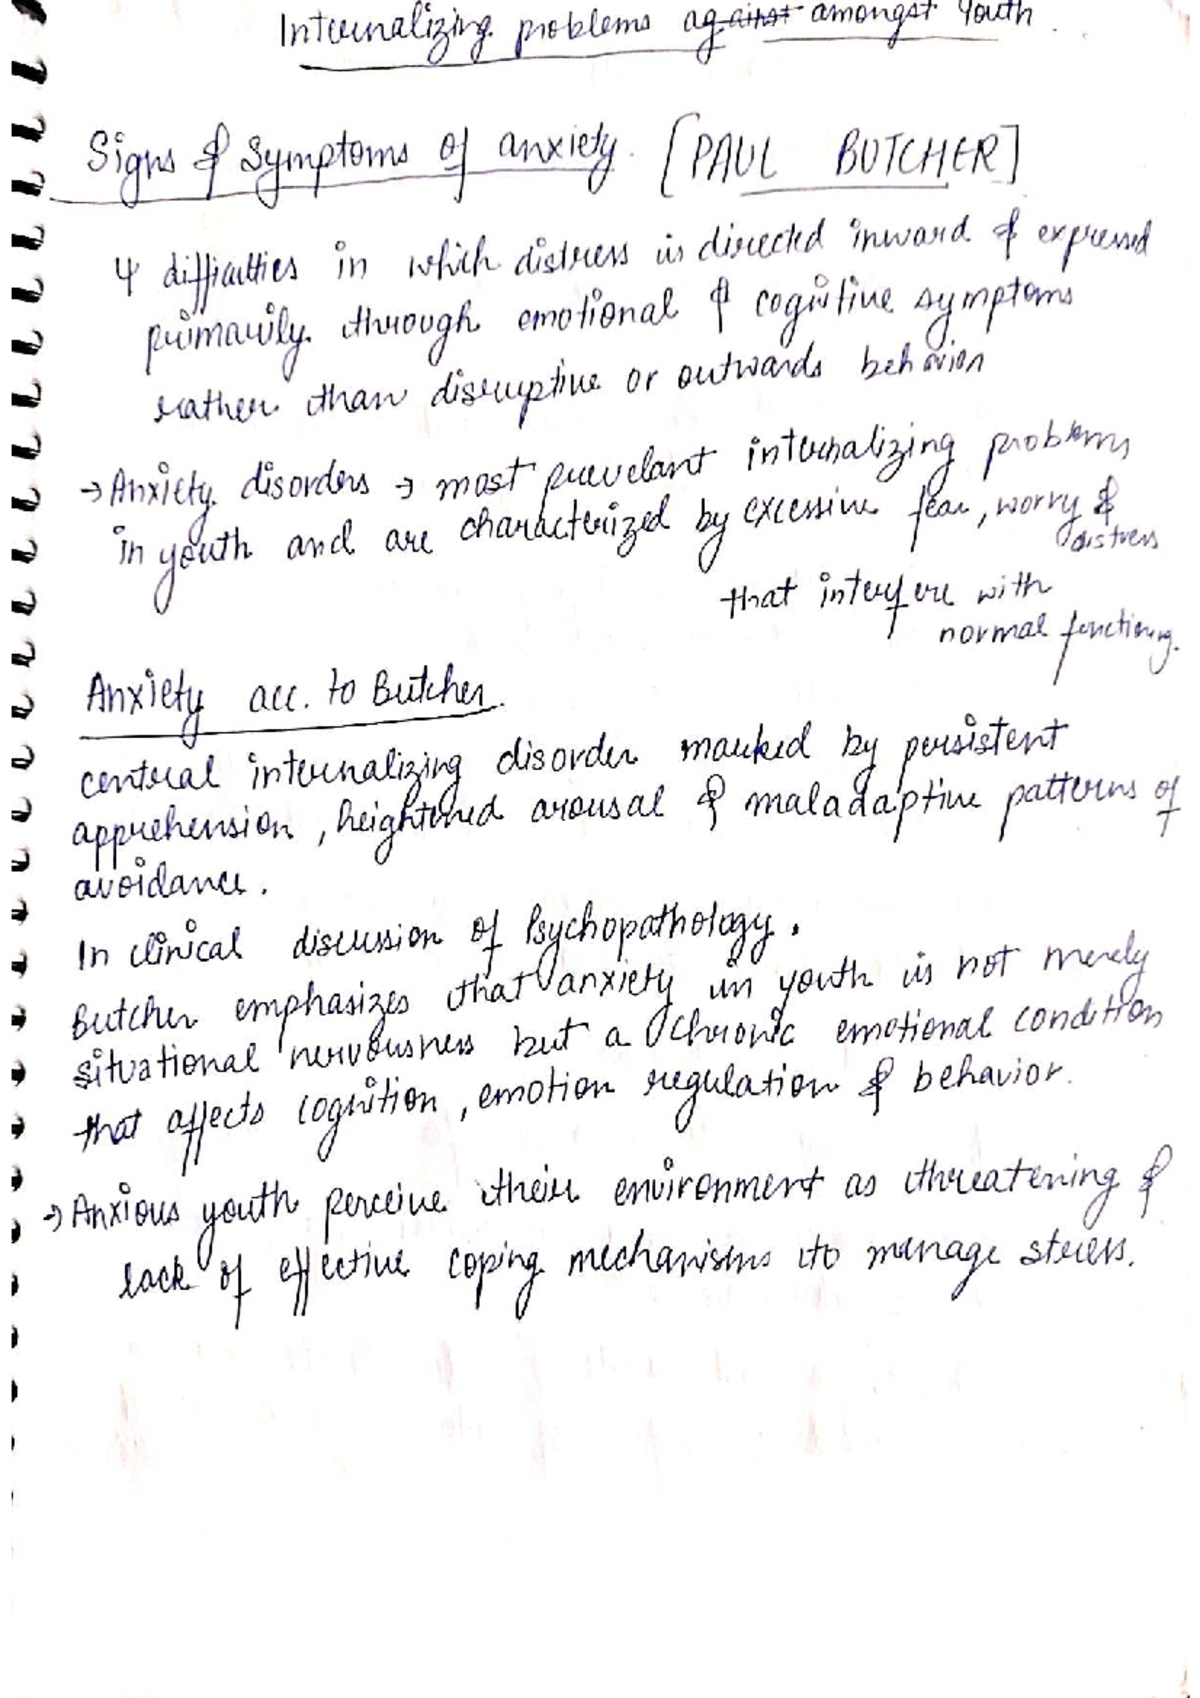 Internalizing problems against amongst Youth.
Signs & Symptoms of anxiety. [PAUL BUTCHER]
↳ difficulties in which distress is directed inward & expressed
primarily through emotional & cognitive symptoms
rather than disruptive or outwards behavior
→ Anxiety disorders → most prevelant internalizing problems
in youth and are characterized by excessive fear, worry &
distress
that interfere with
normal functioning.
Anxiety acc. to Butcher.
central internalizing disorder marked by persistent
apprehension, heightened arousal & maladaptive patterns of
avoidance.
In clinical discussion of Psychopathology.
Butcher emphasizes that anxiety in youth is not merely
situational nervousness but a chronic emotional condition
that affects cognition, emotion regulation & behavior.
→ Anxious youth perceive their environment as threatening &
lack of effective coping mechanisms to manage stress.